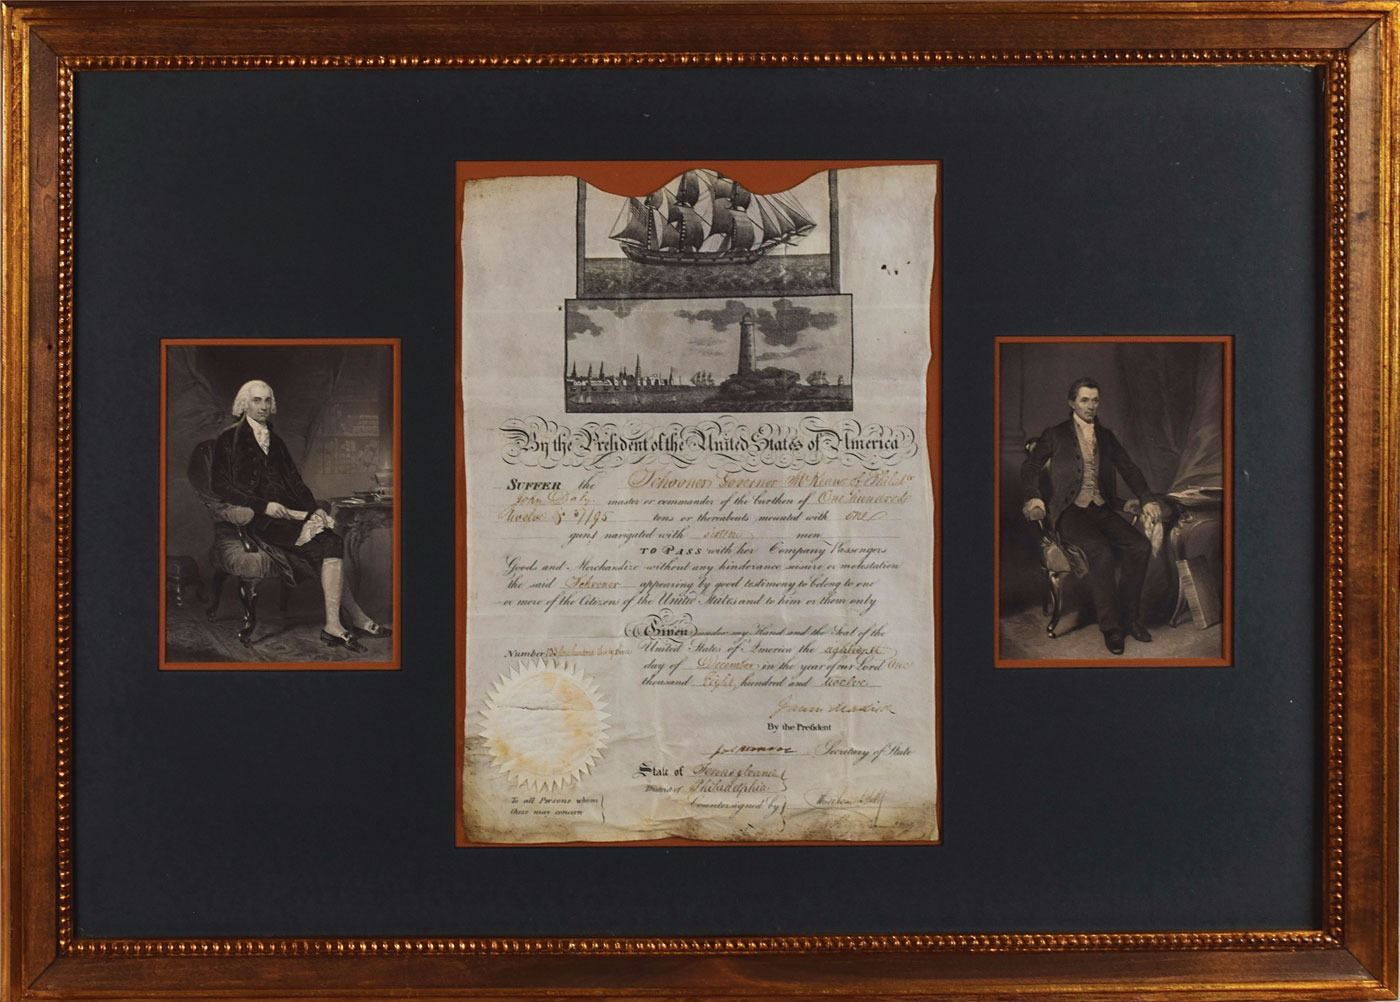 By the President of the United States of America
SUFFER the Schooner Governor McKean of Philada
John Daly master or commander of the burthen of One hundred
twelve & 57/95 tons or thereabouts mounted with one
guns navigated with sixteen men
TO PASS with her Company Passengers
Goods and Merchandize without any hinderance seisure or molestation
the said Schooner appearing by good testimony to belong to one
or more of the Citizens of the United States and to him or them only
Given under my Hand and the Seal of the
Number United States of America the eighteenth
day of December in the year of our Lord One
thousand Eight hundred and twelve
James Madison
By the President
Jas Monroe Secretary of State
State of Pennsylvania
District of Philadelphia
Countersigned by
To all Persons whom
these may concern